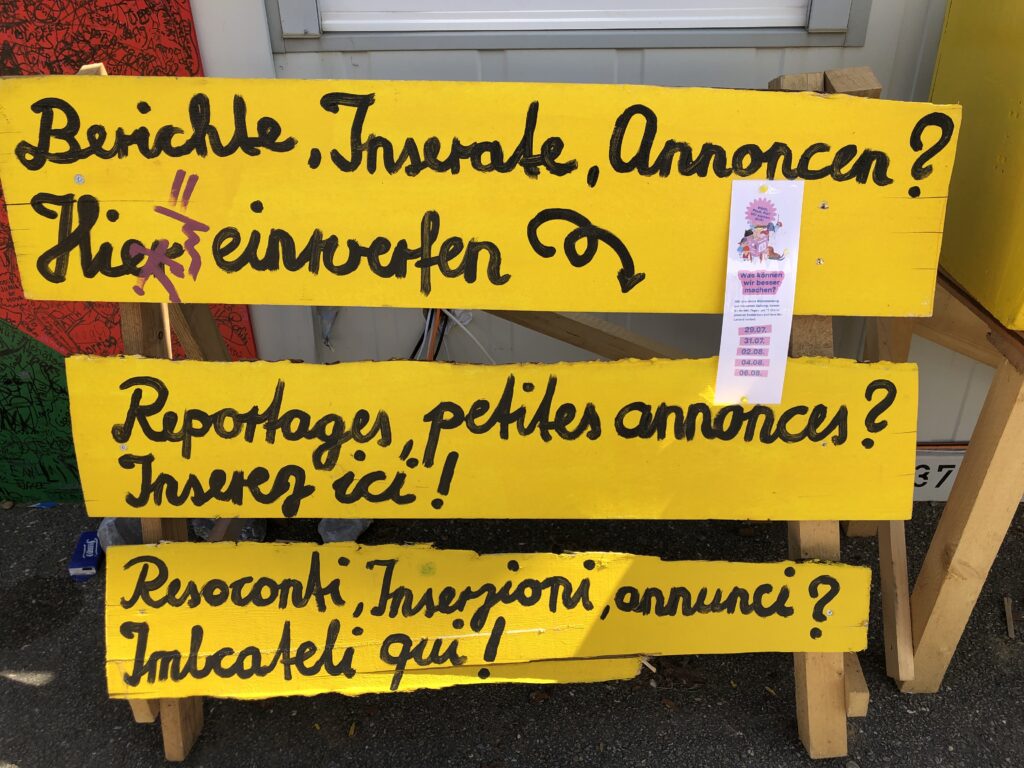 Berichte, Inserate, Annoncen?
Hier einwerfen
Was können
wir besser
machen?
29.07.
31.07.
02.08.
04.08.
06.08.
Reportages, petites annonces?
Inserez ici!
37
Resoconti, Inserzioni, annunci?
Imbcateli qui!